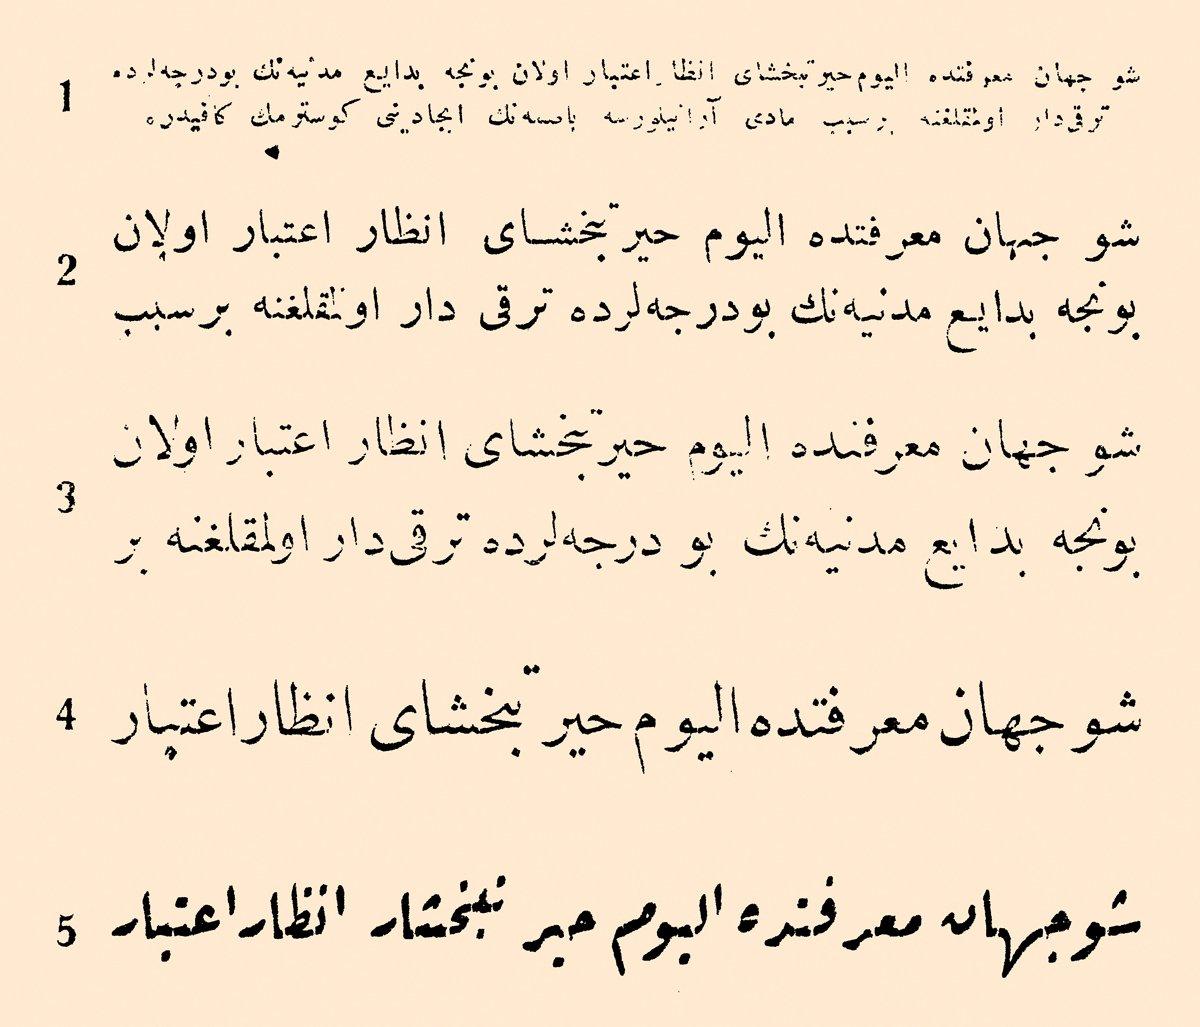 1 شو جهان معرفتده اليوم حيرتبخشاى انظار اعتبار اولان بونجه بدايع مدنيه‌نك بودرجه‌لرده
ترقى‌دار اولمقلغنه برسبب مادى آرانيلورسه باصمه‌نك ايجادينى كوسترمك كافيدر
2 شو جهان معرفتده اليوم حيرتبخشاى انظار اعتبار اولان
بونجه بدايع مدنيه‌نك بودرجه‌لرده ترقى دار اولمقلغنه برسبب
3 شو جهان معرفتده اليوم حيرتبخشاى انظار اعتبار اولان
بونجه بدايع مدنيه‌نك بو درجه‌لرده ترقى‌دار اولمقلغنه بر
4 شو جهان معرفتده اليوم حيرتبخشاى انظار اعتبار
5 شو جهان معرفتده اليوم حيرتبخشار انظار اعتبار